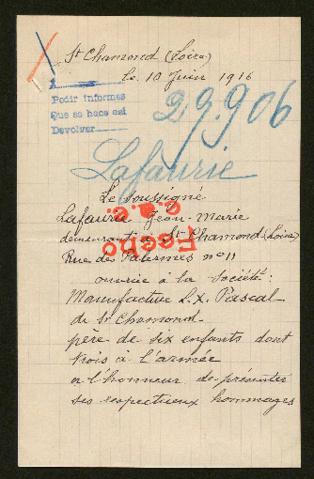 St Chamond (Loire)
le 10 Juin 1916
A
Pedir informes
Que se hace así
Devolver
29.906
Lafaurie
Le soussigné
Lafaurie Jean-Marie
demeurant à St Chamond (Loire)
Rue des Palermes n° 11
ouvrier à la Société:
Manufacture L.X. Pascal
de St Chamond
père de six enfants dont
trois à l'armée
a l'honneur de présenter
ses respectueux hommages